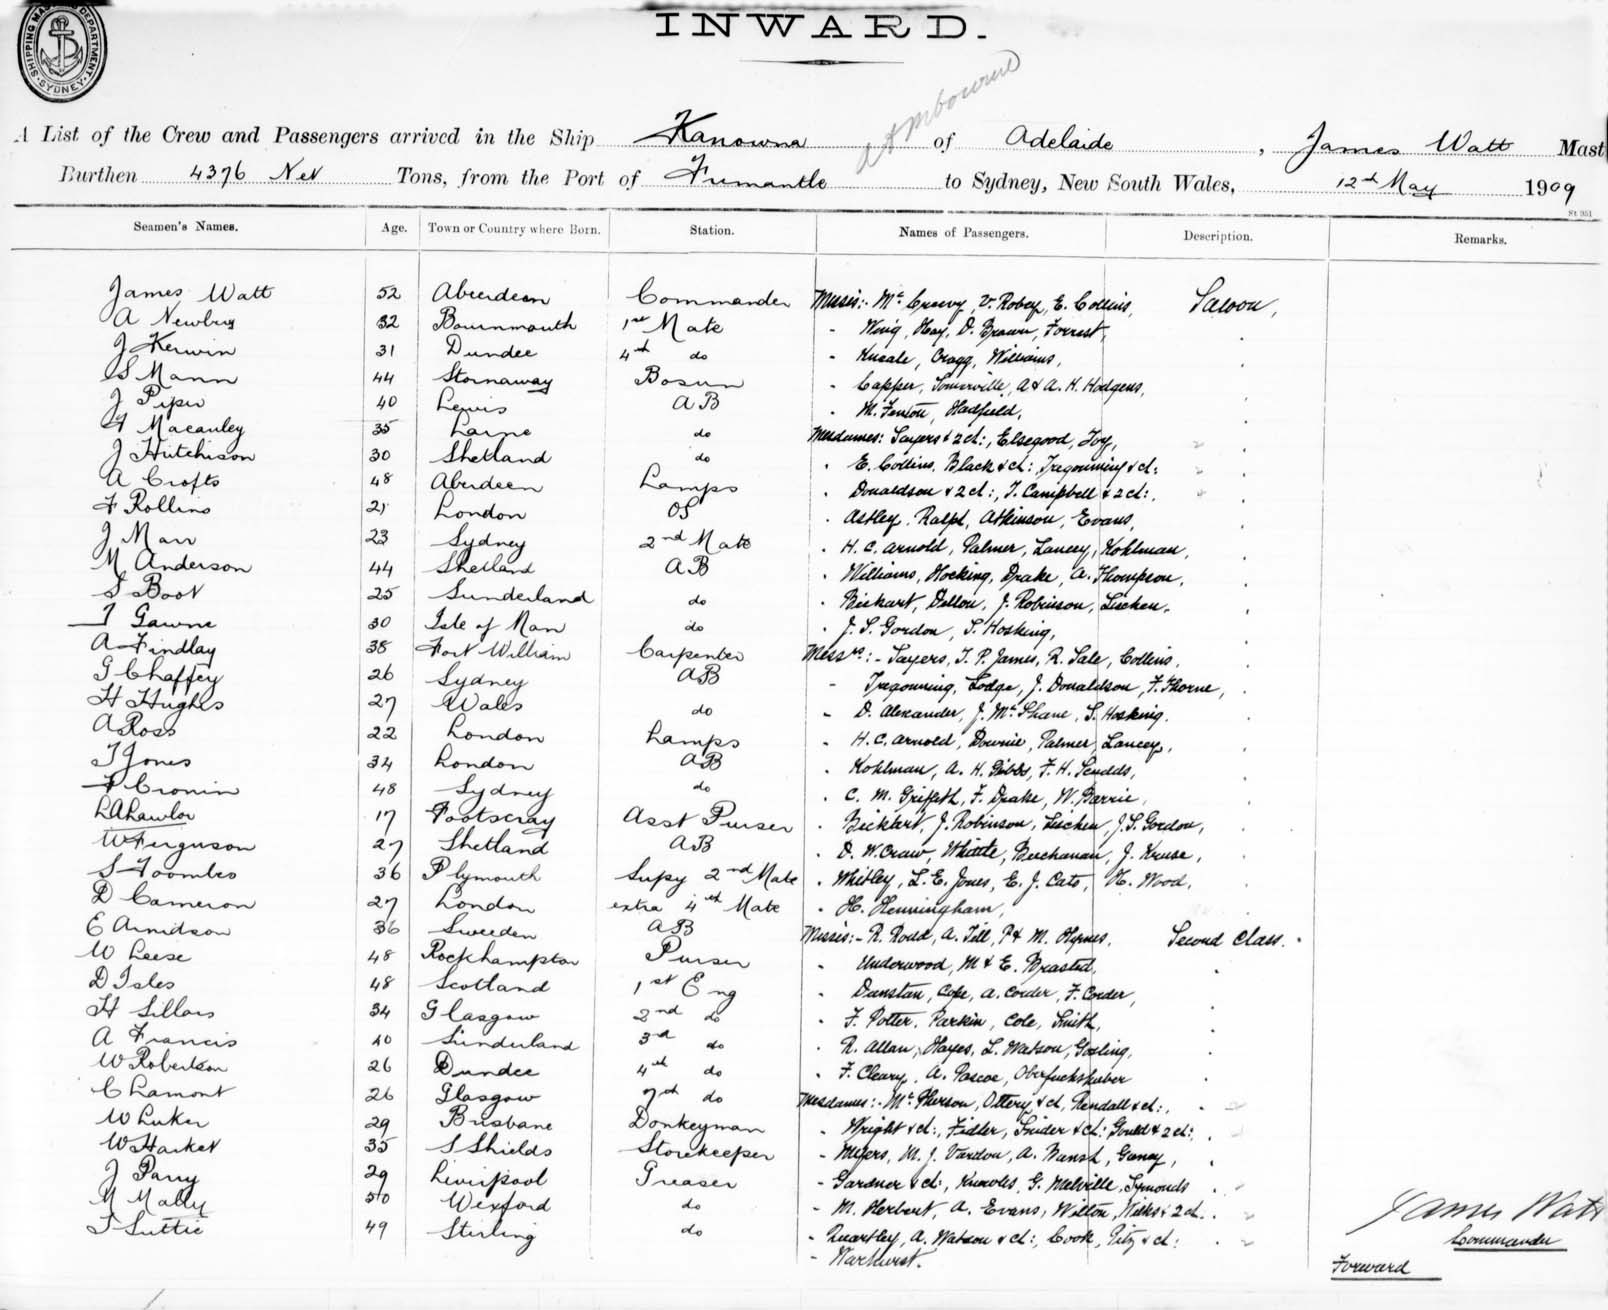 INWARD.
SHIPPING MASTER'S DEPARTMENT SYDNEY
at Mbourne
A List of the Crew and Passengers arrived in the Ship Kanowna of Adelaide, James Watt Mast
Burthen 4376 Net Tons, from the Port of Fremantle to Sydney, New South Wales, 12th May 1909
St 951
Seamen's Names. Age. Town or Country where Born. Station. Names of Passengers. Description. Remarks.
James Watt 52 Aberdeen Commander Misses:- Mc Creevy, V. Robey, E. Collins, Saloon,
A Newbury 32 Bournmouth 1st Mate " Wing, Hay, D. Brown, Forrest,
J Kerwin 31 Dundee 4th do " Kneale, Cragg, Williams,
S Mann 44 Stornaway Bosun " Capper, Somerville, A & A. H. Hodgens,
J Piper 40 Lewis AB " M. Fenton, Hadfield,
Macauley 35 Larne do Mesdames: Sayers & 2 ch:, Elsegood, Joy,
J Hutchison 30 Shetland do " E. Collins, Black & ch: Tregonning & ch:
A Crofts 48 Aberdeen Lamps " Donaldson & 2 ch:, T. Campbell & 2 ch:,
F Rollins 21 London OS " Astley, Ralph, Atkinson, Evans,
J Marr 23 Sydney 2nd Mate " H. C. Arnold, Palmer, Lancey, Kohlman,
M Anderson 44 Shetland AB " Williams, Hocking, Drake, A. Thompson,
S Boot 25 Sunderland do " Bickart, Dillon, J. Robinson, Lischen,
T Gawne 30 Isle of Man do " J. S. Gordon, S. Hosking,
A Findlay 38 Fort William Carpenter Messrs:- Sayers, T. P. James, R. Sale, Collins,
G Chaffey 26 Sydney AB " Tregonning, Lodge, J. Donaldson, F. Thorne,
H Hughes 27 Wales do " D. Alexander, J. McShane, S. Hosking.
A Ross 22 London Lamps " H. C. Arnold, Downie, Palmer, Lancey,
T Jones 34 London AB " Kohlman, A. H. Gibbs, F. H. Scudds,
F Cronin 48 Sydney do " C. M. Griffith, F. Drake, W. Barrie,
L A Lawlor 17 Footscray Asst Purser " Bickart, J. Robinson, Lischen, J. S. Gordon,
W Ferguson 27 Shetland AB " D. W. Craw, Whittle, Buchanan, J. Kruse,
S Toombs 36 Plymouth Supy 2nd Mate " Whitley, L. E. Jones, E. J. Cato, H. Wood,
D Cameron 27 London extra 4th Mate " H. Henningham,
E Arnidson 36 Sweeden AB Misses:- R. Rodd, A. Till, P & M. Hymes, Second Class.
W Leese 48 Rockhampton Purser " Underwood, M & E. Brasted,
D Isles 48 Scotland 1st Eng " Dunstan, Cope, A. Corder, F. Corder,
H Sillars 34 Glasgow 2nd do " F. Potter, Parkin, Cole, Smith,
A Francis 40 Sunderland 3rd do " R. Allan, Hayes, L. Watson, Gosling,
W Robertson 26 Dundee 4th do " F. Cleary, A. Pascoe,
C Lamont 26 Glasgow 7th do Mesdames:- McPherson, Ottery & ch, Kendall & ch:,
W Luker 29 Brisbane Donkeyman " Wright & ch:, Fidler, Snider & ch: Gould & 2 ch:,
W Harket 35 S Shields Storekeeper " Myers, M. J. Vardon, A. Bansh, Ganey,
J Parry 29 Liverpool Greaser " Gardner & ch:, Knowles, G. Melville, Symonds
M Mally 50 Wexford do " M. Herbert, A. Evans, Wilton, Wilks & 2 ch.
T Suttie 49 Stirling do " Quartley, A. Watson & ch:, Cook, Pitz & ch:
" Warhurst.
James Watt
Commander
Forward